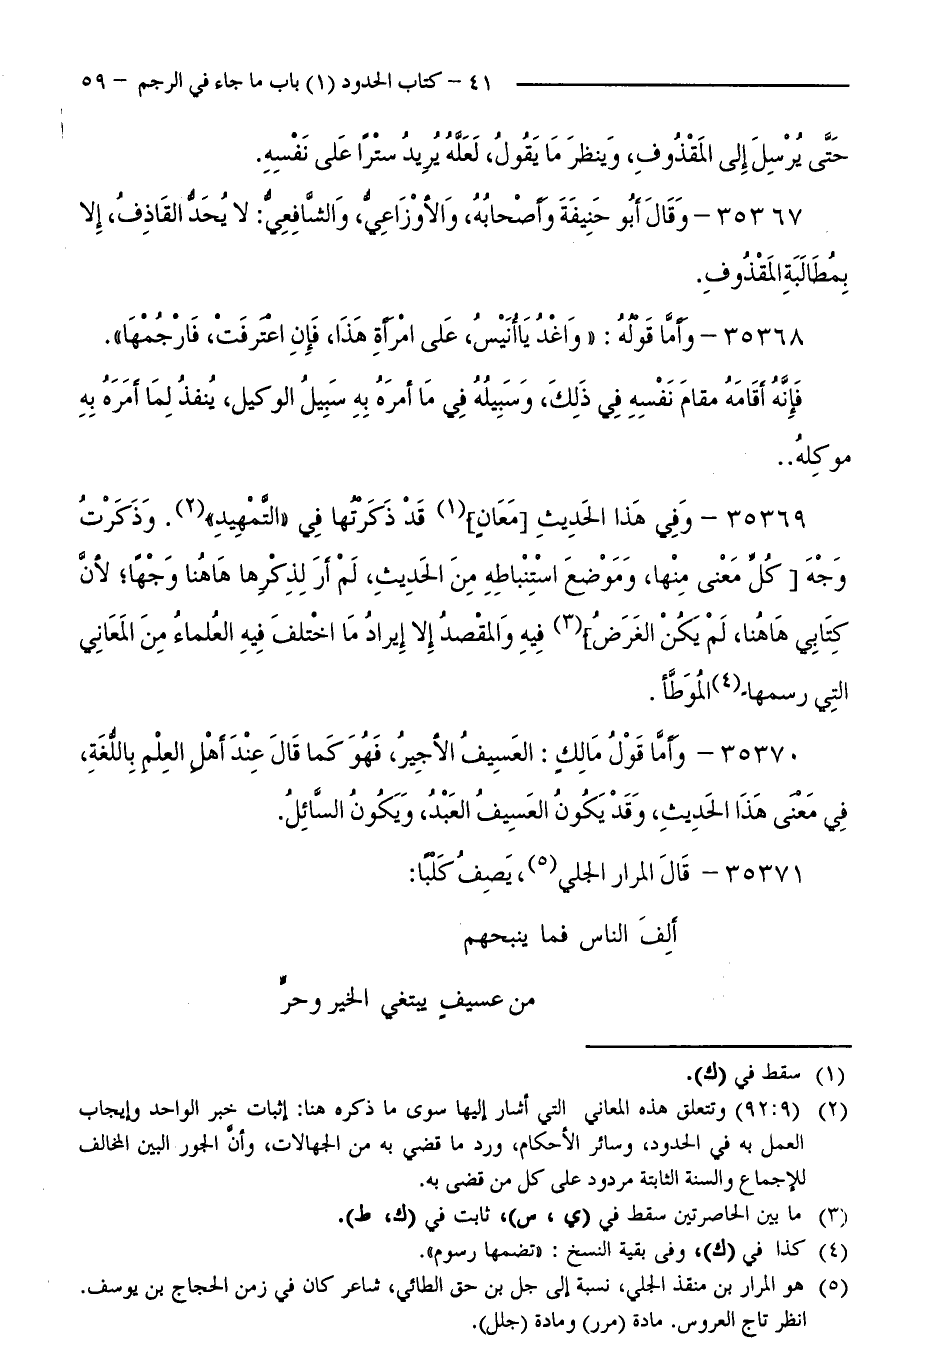 ٤١ - كتاب الحدود (١) باب ما جاء في الرجم - ٥٩
حَتَّى يُرْسِلَ إِلى المَقْذُوفِ، وَيَنظرَ مَا يَقُولُ، لَعَلَّهُ يُرِيدُ سترًا عَلى نَفْسِهِ.
٣٥٣٦٧ - وَقَالَ أَبُو حَنِيفَةَ وَأَصْحابُهُ، وَالأوْزَاعِيُّ، وَالشَّافِعِيُّ: لا يُحَدُّ القَاذِفُ، إِلا
بِمُطَالَبَةِ المَقْذُوفِ.
٣٥٣٦٨ - وَأَمَّا قَوْلُهُ : « وَاغْدُ يَاأُنَيْسُ، عَلى امْرَأَةِ هَذَا، فَإِنِ اعْتَرَفَتْ، فَارْجُمْهَا».
فَإِنَّهُ أَقَامَهُ مقامَ نَفْسِهِ فِي ذَلِكَ، وَسَبِيلُهُ فِي مَا أمرَهُ بِهِ سَبِيلُ الوكيل، يُنفذُ لِمَا أَمَرَهُ بِهِ
موكِلهُ..
٣٥٣٦٩ - وَفِي هَذَا الحَدِيثِ [مَعَانٍ](١) قَدْ ذَكَرْتُها فِي «التَّمْهِيدِ»(٢). وَذَكَرْتُ
وَجْهَ [ كُلِّ مَعْنى مِنْها، وَمَوْضعَ اسْتْنْباطِهِ مِنَ الحَدِيثِ، لَمْ أَرَ لِذِكْرِها هَاهُنا وَجْهًا؛ لأنَّ
كِتَابِي هَاهُنا، لَمْ يَكُنْ الغَرَضُ](٣) فِيهِ وَالمقْصدُ إِلا إِيرادُ مَا اخْتلفَ فِيهِ العُلماءُ مِنَ المَعَانِي
التِي رسمها(٤)المُوَطَّأ .
٣٥٣٧٠ - وَأَمَّا قَوْلُ مَالِكٍ : العَسِيفُ الأجِيرُ، فَهُوَ كَما قَالَ عِنْدَ أَهْلِ العِلْمِ بِاللُّغَةِ،
فِي مَعْنَى هَذَا الحَدِيثِ، وَقَدْ يَكُونُ العَسِيفُ العَبْدُ، وَيَكُونُ السَّائِلُ.
٣٥٣٧١ - قَالَ المرار الجلي(٥)، يَصِفُ كَلْبًا:
أَلِفَ الناس فما ينبحهم
من عسيفٍ يبتغي الخير وحرّ
(١) سقط في (ك).
(٢) (٩٢:٩) وتتعلق هذه المعاني التي أشار إليها سوى ما ذكره هنا: إثبات خبر الواحد وإيجاب
العمل به في الحدود، وسائر الأحكام، ورد ما قضي به من الجهالات، وأنَّ الجور البين المخالف
للإجماع والسنة الثابتة مردود على كل من قضى به.
(٣) ما بين الحاصرتين سقط في (ي ، س)، ثابت في (ك، ط).
(٤) كذا في (ك)، وفى بقية النسخ : «تضمها رسوم».
(٥) هو المرار بن منقذ الجلي، نسبة إلى جل بن حق الطائي، شاعر كان في زمن الحجاج بن يوسف.
انظر تاج العروس. مادة (مرر) ومادة (جلل).